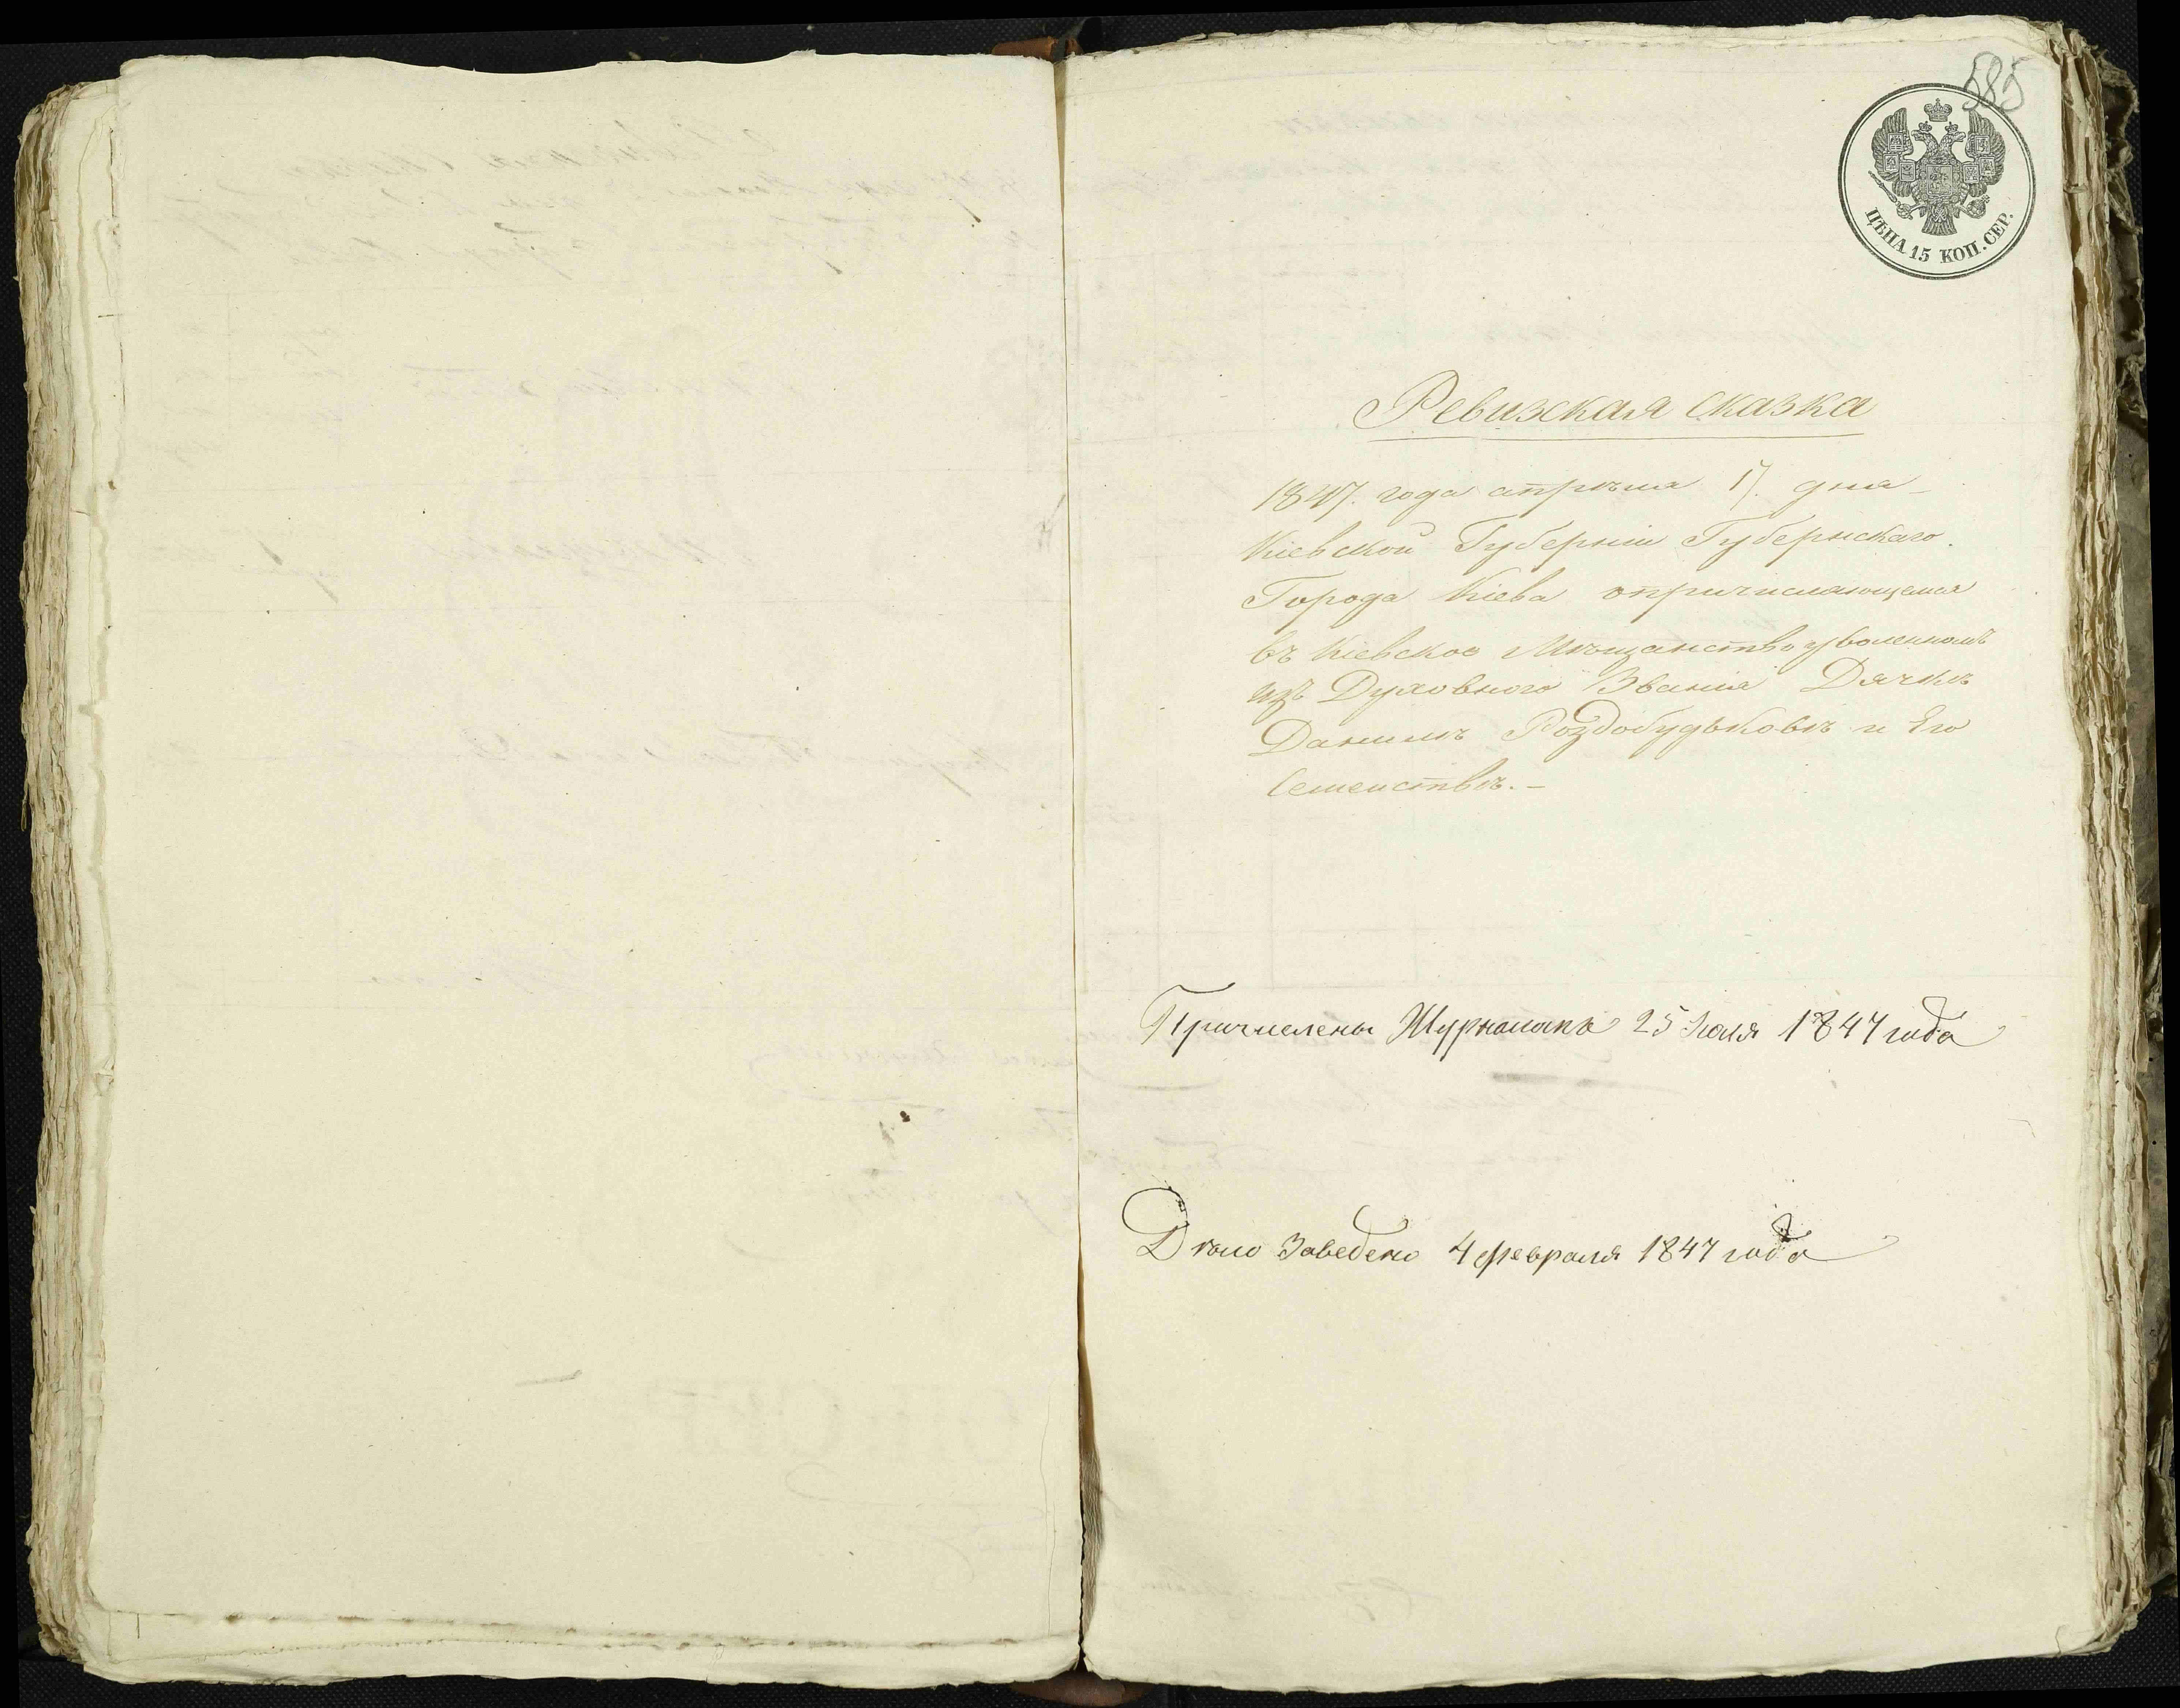 585
ЦѢНА 15 КОП. СЕР.
Ревизская сказка
1847. года апрѣля 17. дня
Кіевской Губерніи Губернскаго
Города Кіева опричисляющемся
въ Кіевское Мѣщанство уволенномъ
изъ Духовного Званія Дячкѣ
Данилѣ Роздобудьковѣ и Его
Семействѣ. —
Причислены Журналомъ 25 Іюля 1847 года
Дѣло Заведено 4 февраля 1847 года